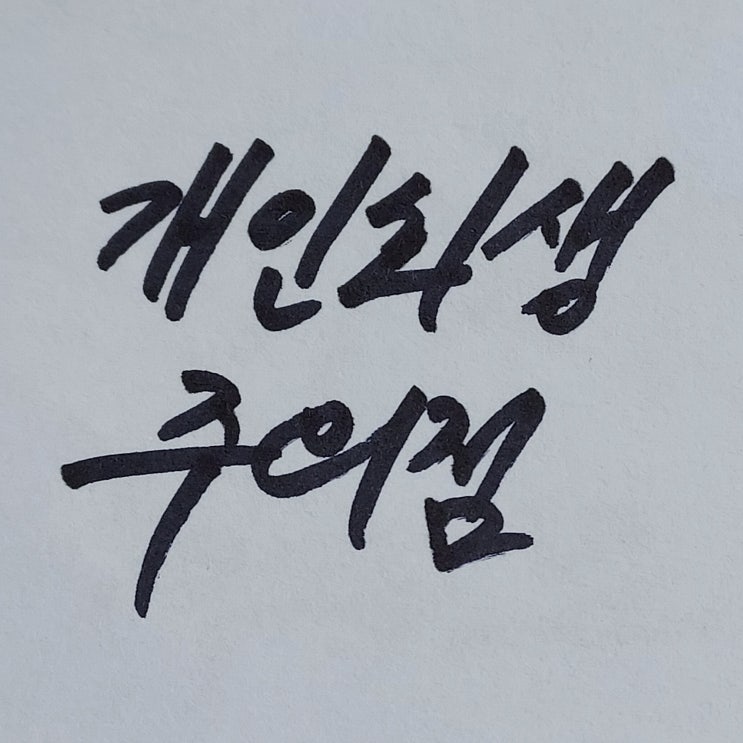 개인회생
주의점